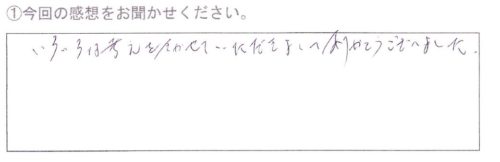 ①今回の感想をお聞かせください。
いろいろな考えを聞かせていただきましてありがとうございました。